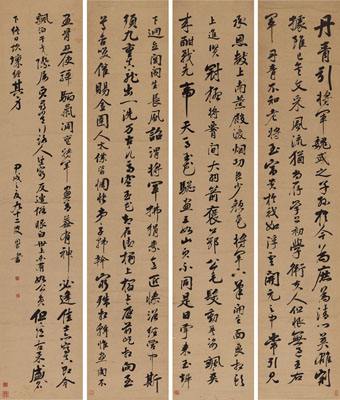 丹青引 將軍魏武之子孫於今為庶為清門英雄割
據雖已矣文采風流猶尚存學書初學衛夫人但恨無過王右
軍丹青不知老將至富貴於我如浮雲開元之中常引見
承恩數上南薰殿凌煙功臣少顏色將軍下筆開生面良相頭
上進賢冠猛將腰間大羽箭褒公鄂公毛髮動英姿颯爽
來酣戰先帝天馬玉花驄畫工如山貌不同是日牽來赤墀
下迥立閶闔生長風詔謂將軍拂絹素意匠慘澹經營中斯
須九重真龍出一洗萬古凡馬空玉花卻在御榻上榻上庭前屹相向至
尊含笑催賜金圉人太僕皆惆悵弟子韓幹窮殊相幹惟畫肉不
畫骨忍使驊騮氣凋喪將軍畫善蓋有神必逢佳士亦寫真即今
飄泊干戈際屢貌尋常行路人途窮反遭俗眼白世上未有如公貧但看古來盛名
下終日坎壈纏其身
甲戌 書